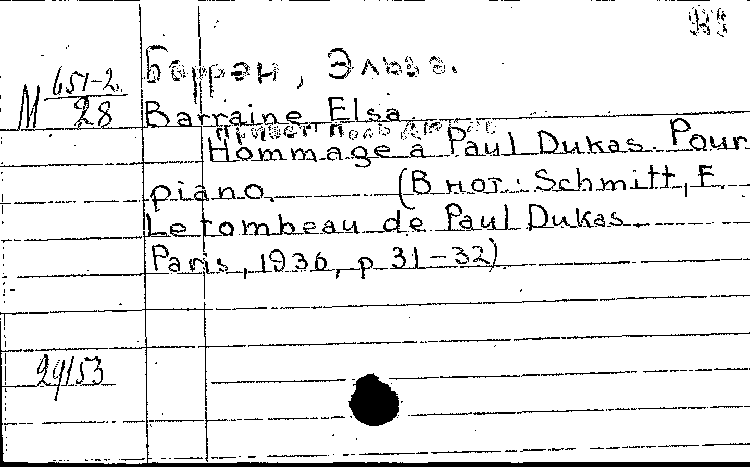 М 651-2
28
Баррэн, Эльза.
Barraine Elsa
Hommage à Paul Dukas. Pour
piano. (В нот: Schmitt, F.
Le tombeau de Paul Dukas.
Paris, 1936, p 31-32)
29/53